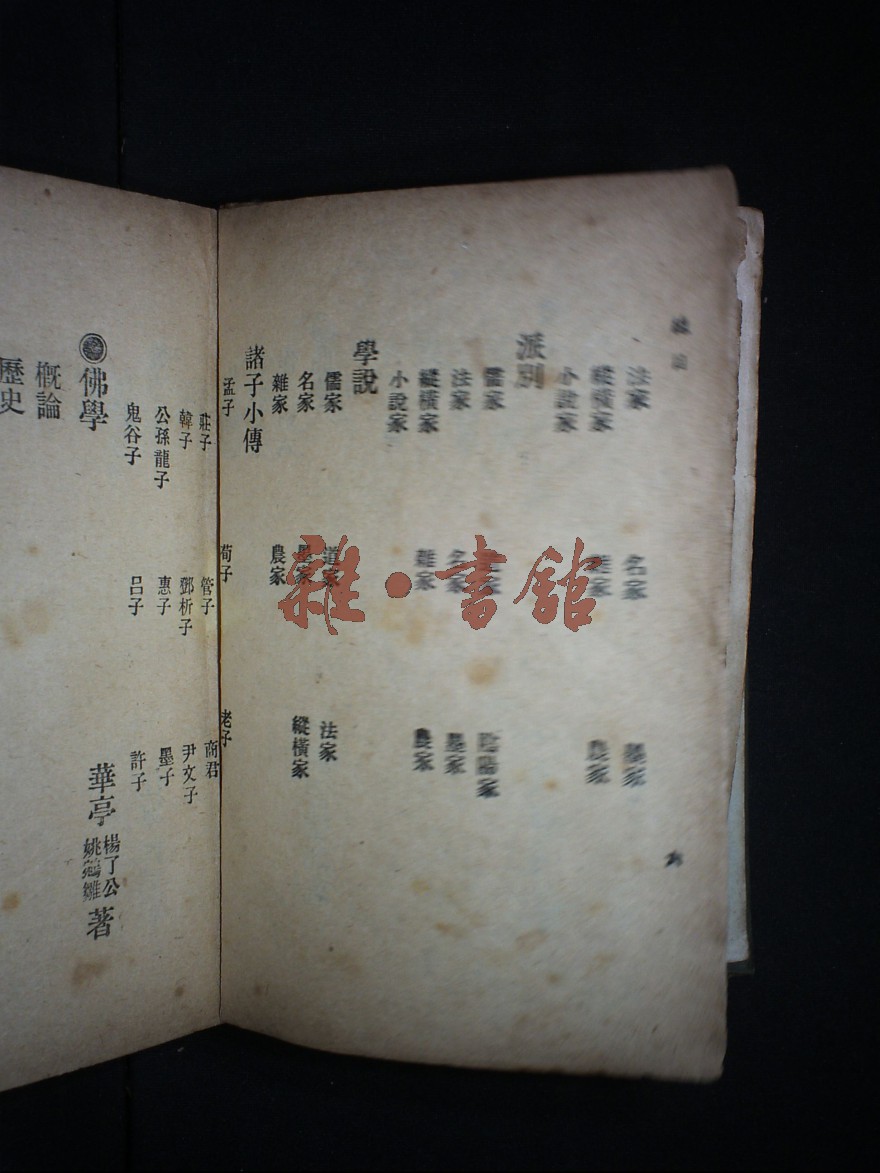 法家 名家 墨家
縱橫家 雜家 農家
小說家
派別
儒家 陰陽家
法家 名家 墨家
縱橫家 雜家 農家
小說家
學說
儒家 道家 法家
名家 墨家 縱橫家
雜家 農家
諸子小傳
孟子 荀子 老子
莊子 管子 商君
韓子 鄧析子 尹文子
公孫龍子 惠子 墨子
鬼谷子 呂子 許子
佛學 華亭 楊了公 姚鵷雛 著
概論
歷史
雜·書館